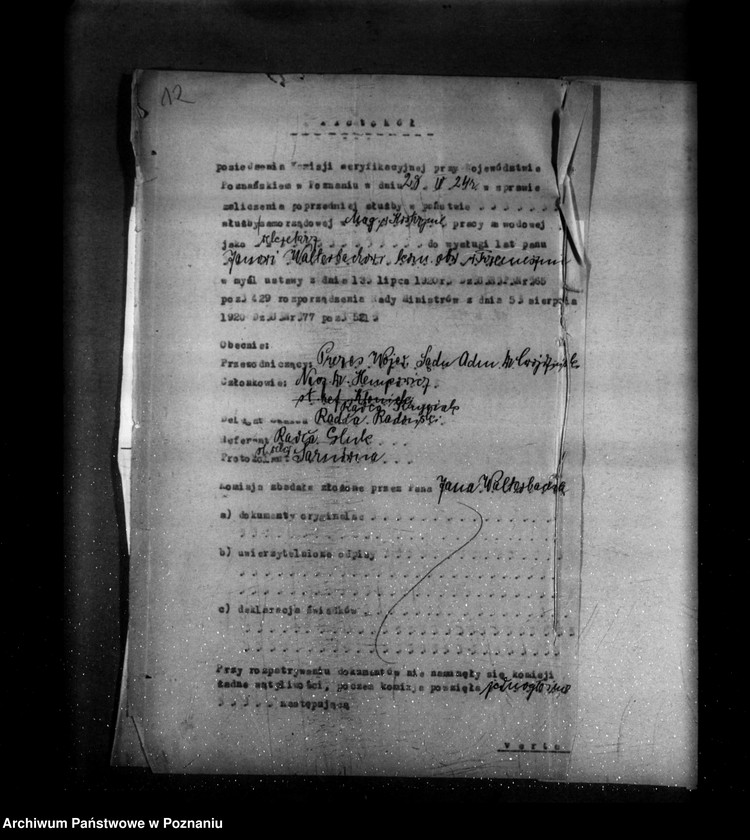 12
Protokół
posiedzenia Komisji weryfikacyjnej przy Województwie
Poznańskiem w Poznaniu w dniu 28. IV 24 r. w sprawie
zaliczenia poprzedniej służby w państwie
służby samorządowej Mag. pracy zawodowej
jako sekretarz do wysługi lat panu
Janowi Walterbachowi kom. obw.
w myśl ustawy z dnia 13. lipca 1920 r. Dz.U. Nr. 65
poz. 429 rozporządzenia Rady Ministrów z dnia 5. sierpnia
1920 Dz.U. Nr. 77 poz. 521.
Obecnie:
Przewodniczący: Prezes Wojew. Sądu Adm.
Członkowie: Nacz. W. Hempowicz
Radca
Radca
Referent Radca Gluk
Protokolant
Komisja zbadała złożone przez Pana Jana Walterbacha
a) dokumenty oryginalne
b) uwierzytelnione odpisy
c) deklaracja świadków
Przy rozpatrywaniu dokumentów nie nasunęły się komisji
żadne wątpliwości, poczem komisja powzięła jednogłośnie
następującą
Verte
Archiwum Państwowe w Poznaniu